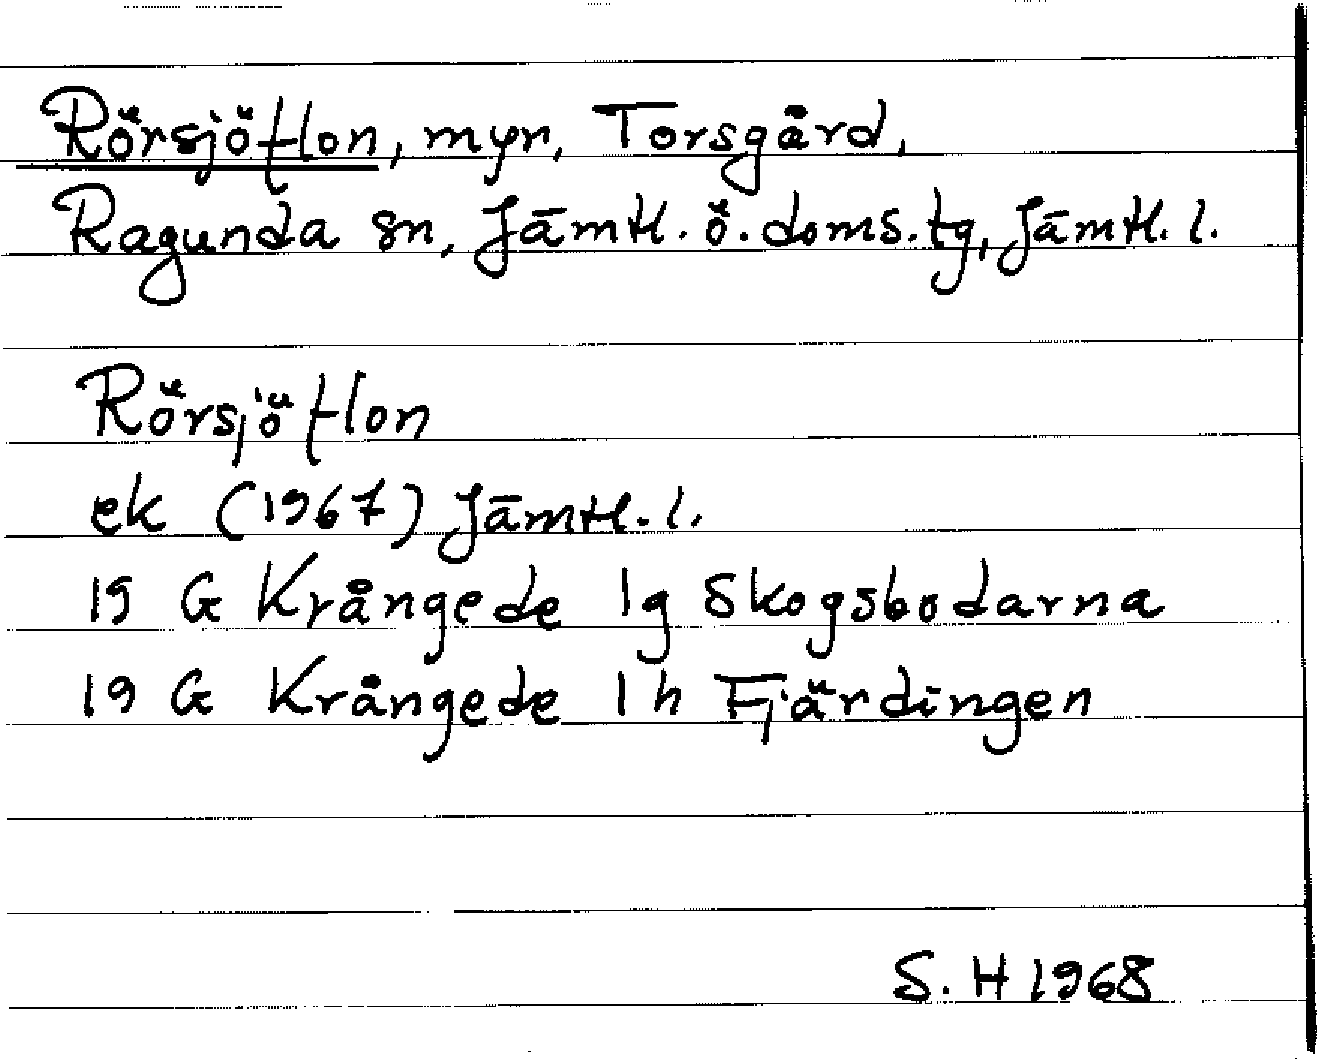 Rörsjöflon, myr, Torsgård,
Ragunda sn, Jämtl. ö. doms. tg, Jämtl. l.
Rörsjöflon
ek (1967) Jämtl. l.
19 G Krångede 1g Skogsbodarna
19 G Krångede 1h Fjärdingen
S. H 1968